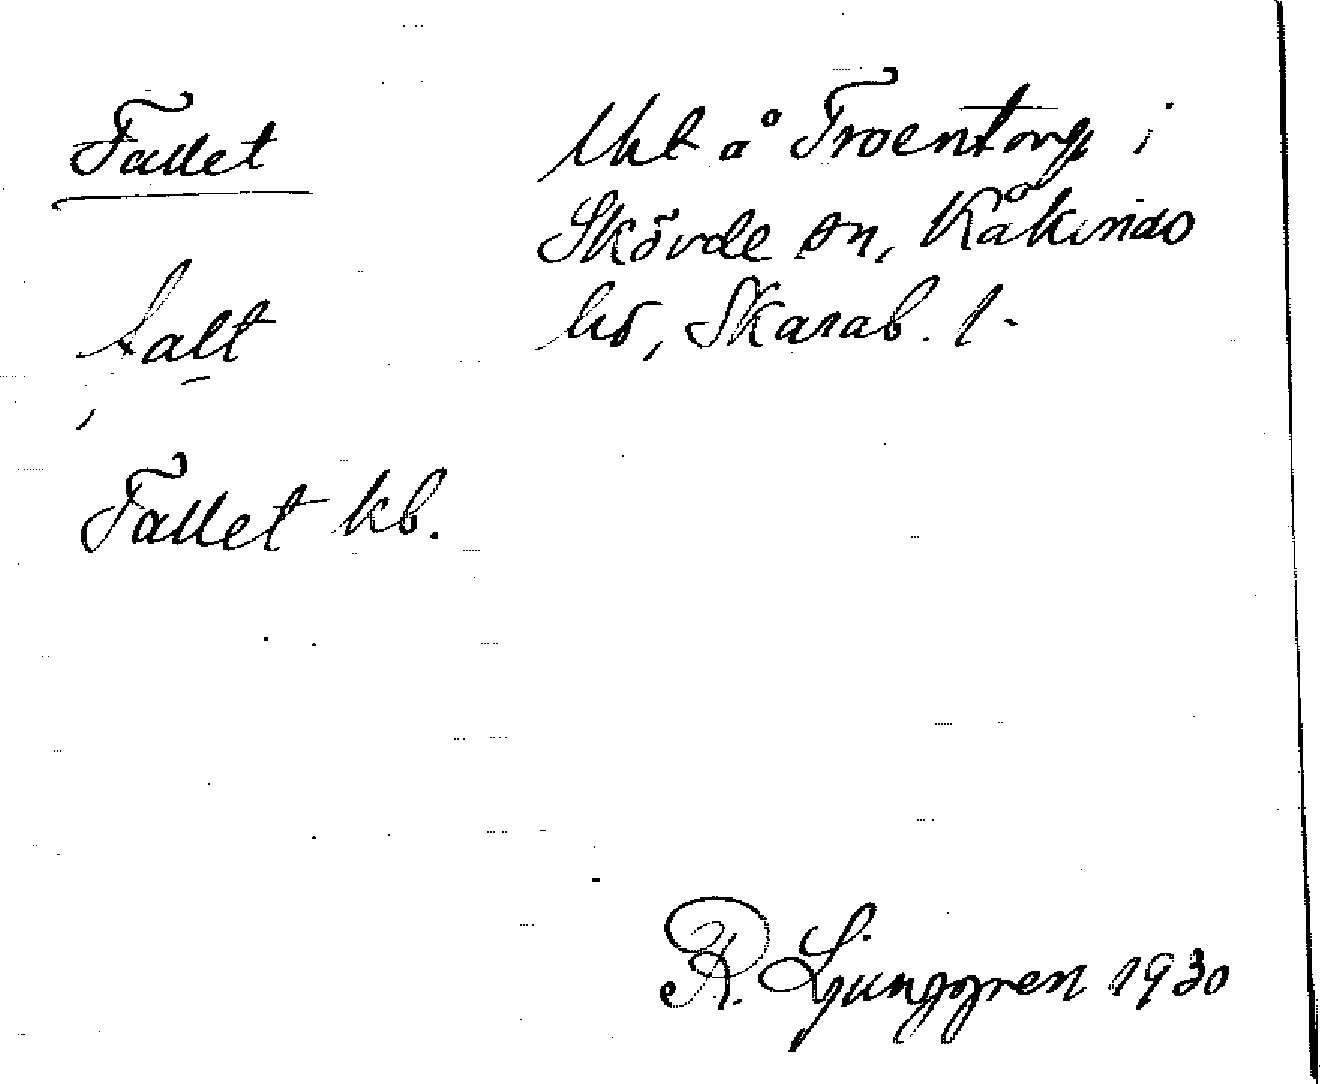 Fallet
Uht å Troentorp i
Skövde sn, Kåkinds
hd, Skarab. l.
falt
Fallet kb.
R. Ljunggren 1930